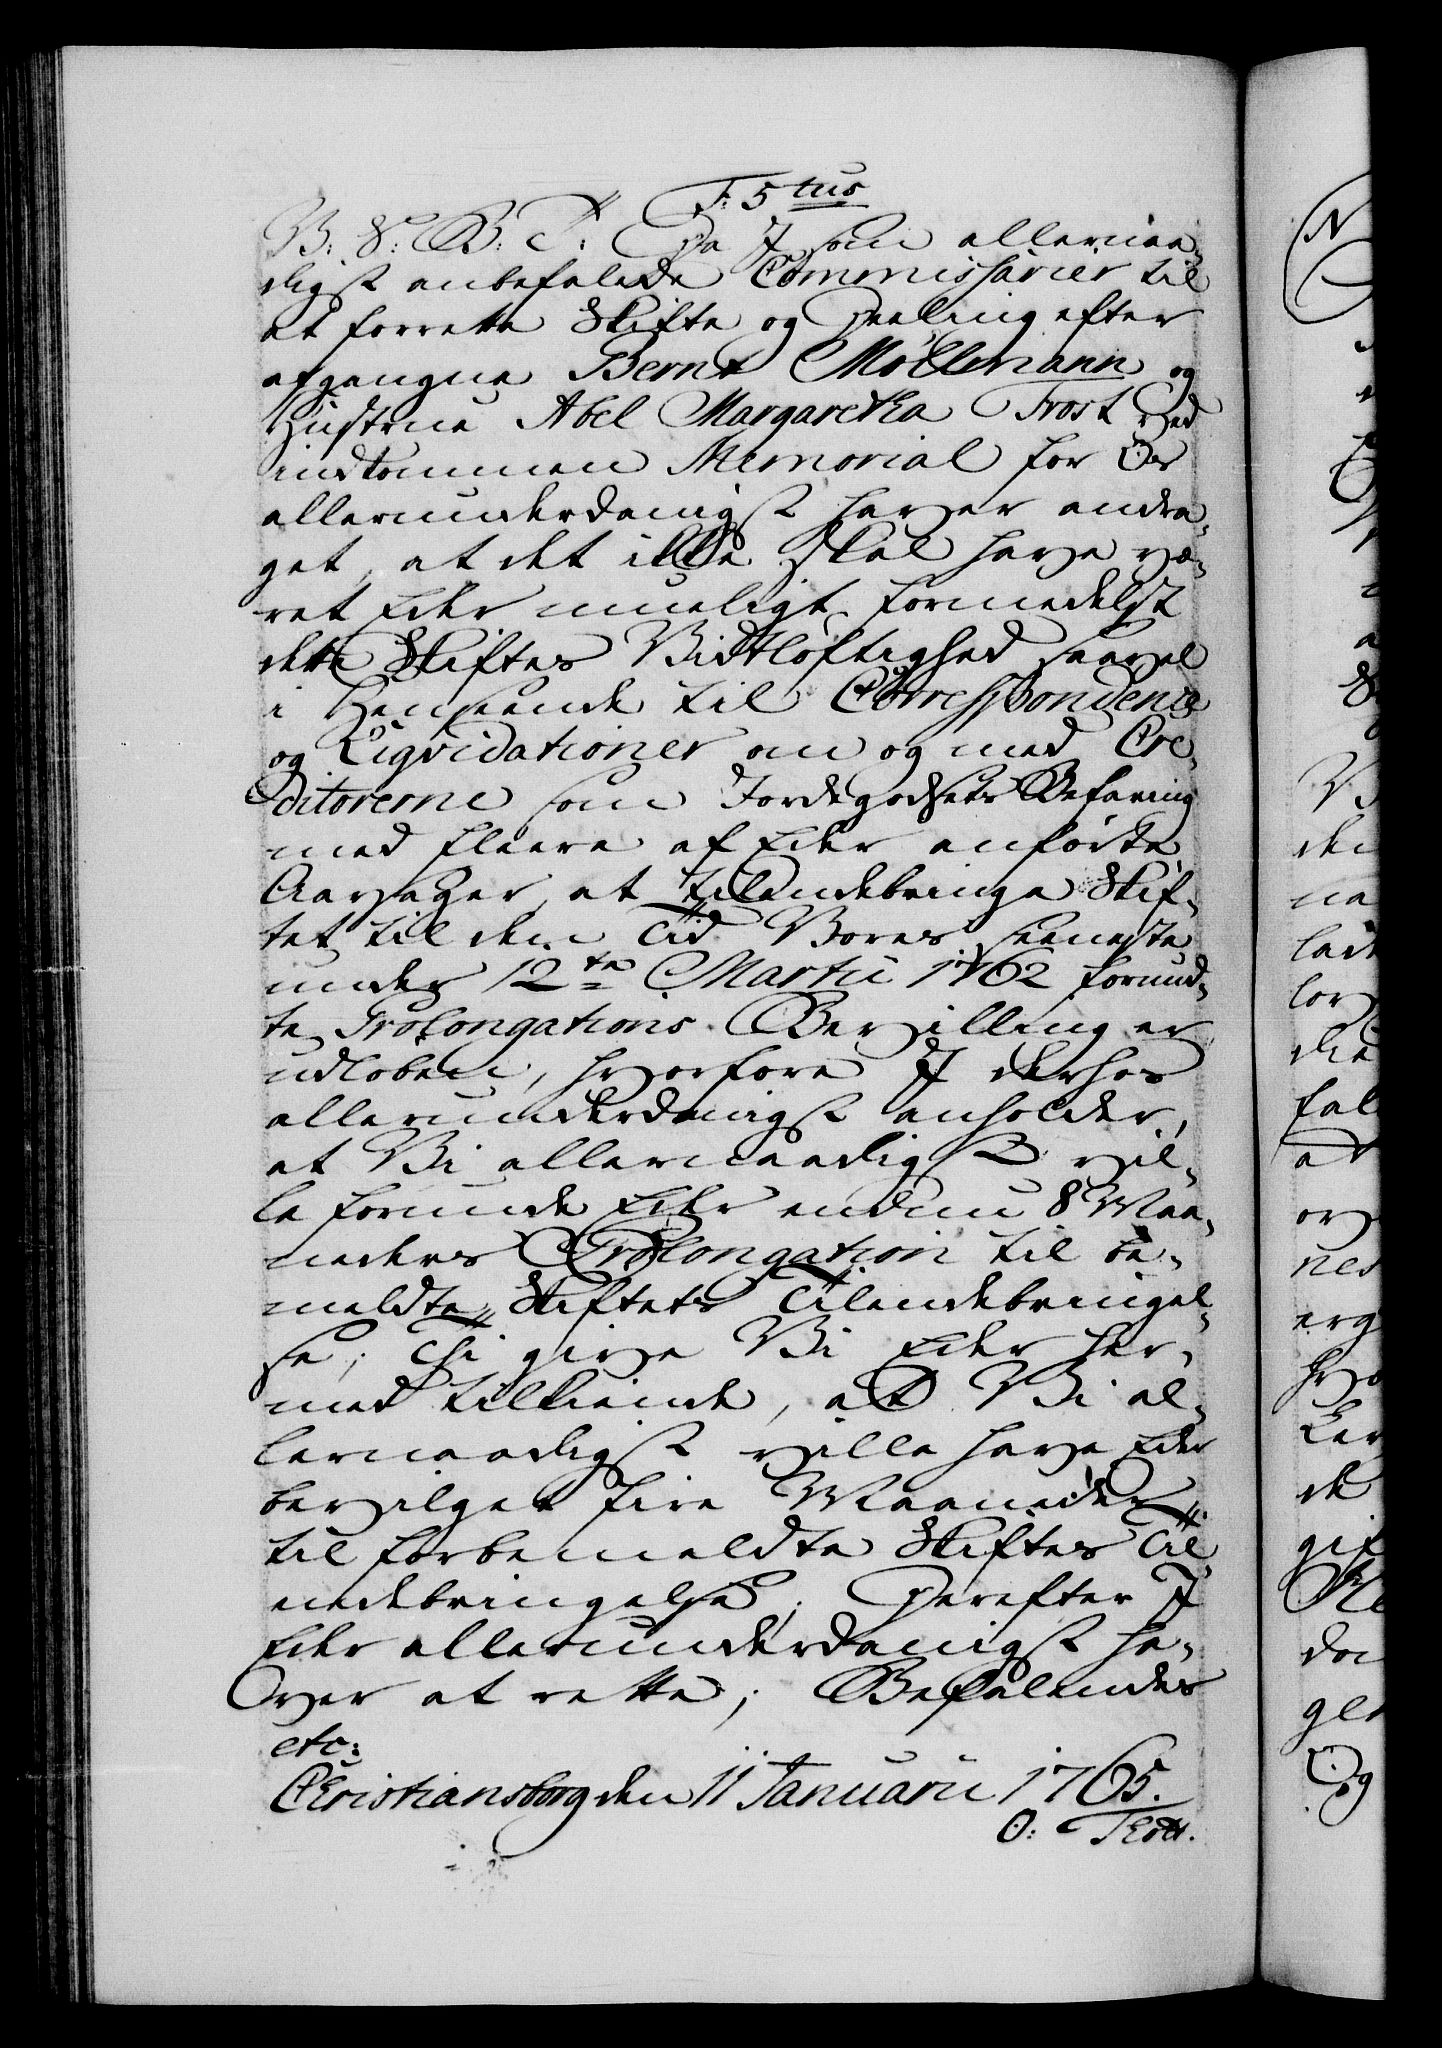 F: 5tus
V: S: V: T: Da I som allernaa-
digst anbefalede Commissarier til
at forrette Skifte og Deeling efter
afgangne Bernt Möllmann og
Hustrue Abel Margaretha Frost ved
indkommen Memorial for Os
allerunderdanigst haver andra-
get, at det ikke skal have væ-
ret Eder mueligt formedelst
dette Skiftes Vidtløftighed saavel
i Henseende til Correspondence
og Liqvidationer om og med Cre-
ditorerne som Jordegodsets Befaring
med fleere af Eder anførte
Aarsager, at tilendebringe Skif-
tet til den Tid Vores seeneste
under 12te Martii 1762 forund-
te Prolongations Bevilling er
udløben, hvorfore I derhos
allerunderdanigst anholder,
at Vi allernaadigst vil-
le forunde Eder endnu 8 Maa-
neders Prolongation til be-
meldte Skiftets Tilendebringel-
se; Thi give Vi Eder her-
med tilkiende, at Vi al-
lernaadigst ville have Eder
bevilget fire Maaneder
til forbemeldte Skiftes Til-
endebringelse; Derefter I
Eder allerunderdanigst ha-
ver at rette; Befalendes
etc:
Christiansborg den 11 Januarii 1765.
O: Thott.